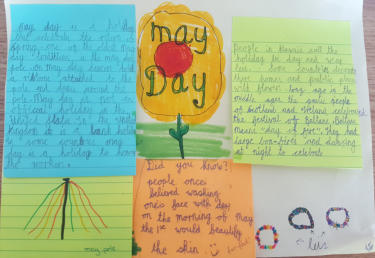 may day is a holiday
that celebrate the return of
spring. one of the oldest may
day traditions is the may day
pole. on may day people hold
a ribbone attached to the
pole and dance around the
pole. May day is not an
official holiday in the
United State in the united
kingdom it is a bank holiday
in some countries may
day is a holiday to honor
the worker.
may
Day
people in Hawaii call the
holiday lei day and wear
leis. some countries decorate
their homes and public places
with flower. long ago in the
middle ages the gaelic people
of scotland and ireland celebrated
the festival of Beltane Beltane
means "day of fire". They had
large bonfires and dancing
at night to celebrate
may pole
Did you know?
people once
believed washing
one's face with dew
on the morning of may
the 1st would beautify
the skin.
leis